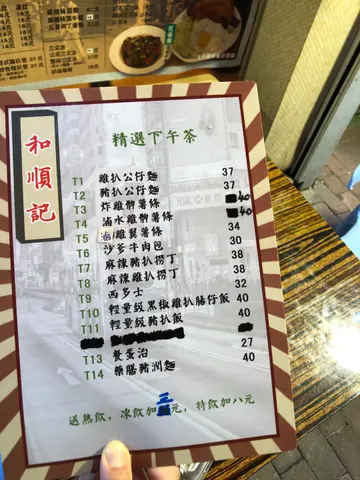 和順記
精選下午茶
T1 雞扒公仔麵 37
T2 豬扒公仔麵 37
T3 炸雞髀薯條 40
T4 滷水雞髀薯條 40
T5 滷雞翼薯條 34
T6 沙爹牛肉包 30
T7 麻辣豬扒捞丁 38
T8 麻辣雞扒捞丁 38
T9 西多士 32
T10 輕量級黑椒雞扒腸仔飯 40
T11 輕量級豬扒飯 40
T13 餐蛋治 27
T14 藥膳豬潤麵 40
送熱飲，凍飲加三元，特飲加八元